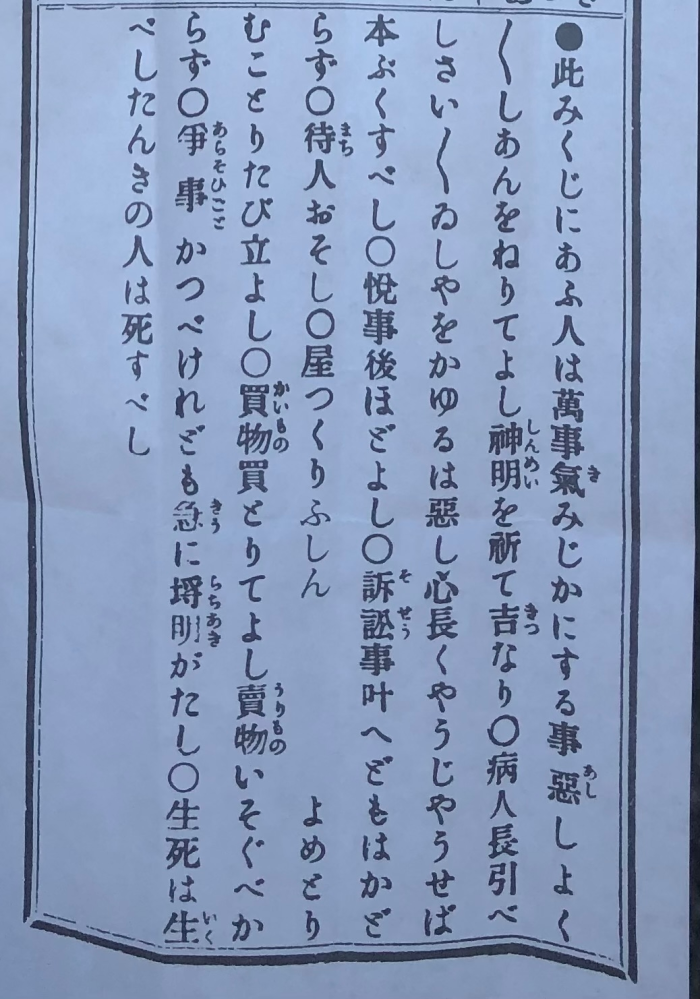 ●此みくじにあふ人は萬事氣みじかにする事惡しよく
〱しあんをねりてよし神明を祈て吉なり〇病人長引べ
しさい〱ゐしやをかゆるは惡し心長くやうじやうせば
本ぶくすべし〇悅事後ほどよし〇訴訟事叶へどもはかど
らず〇待人おそし〇屋つくりふしん　　　よめとり
むことりたび立よし〇買物買とりてよし賣物いそぐべか
らず〇爭事かつべけれども急に埓明がたし〇生死は生
べしたんきの人は死すべし